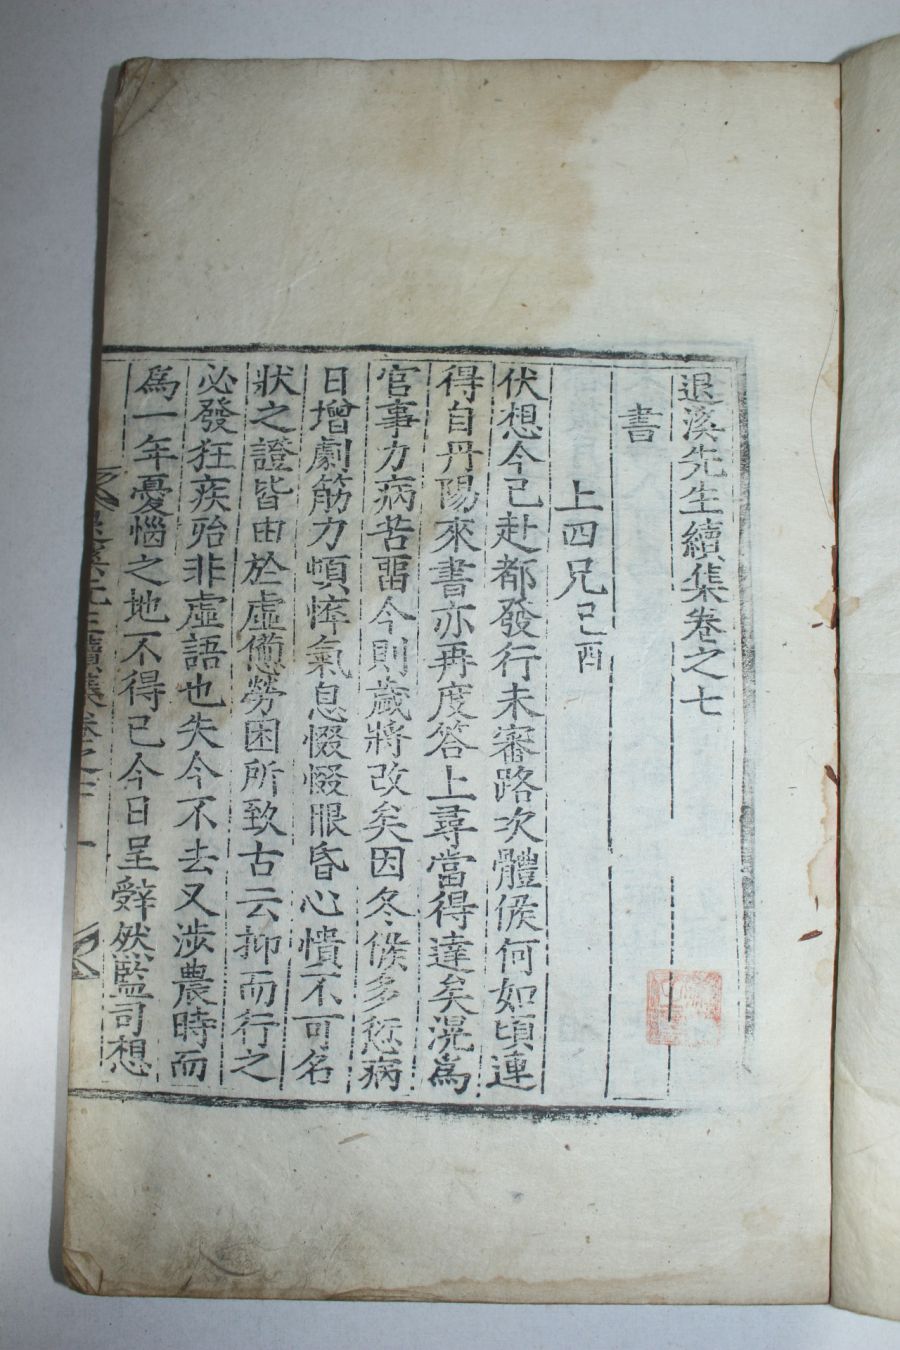 退溪先生續集卷之七
書
上四兄己酉
伏想今已赴都發行未審路次體候何如頃連
得自丹陽來書亦再度答上尋當得達矣滉爲
官事力病苦留今則歲將改矣因冬候多愆病
日增劇筋力頓悴氣息惙惙眼昏心憒不可名
狀之證皆由於虛憊勞困所致古云抑而行之
必發狂疾殆非虛語也失今不去又涉農時而
爲一年憂惱之地不得已今日呈辭然監司想
退溪先生續集卷之七 一